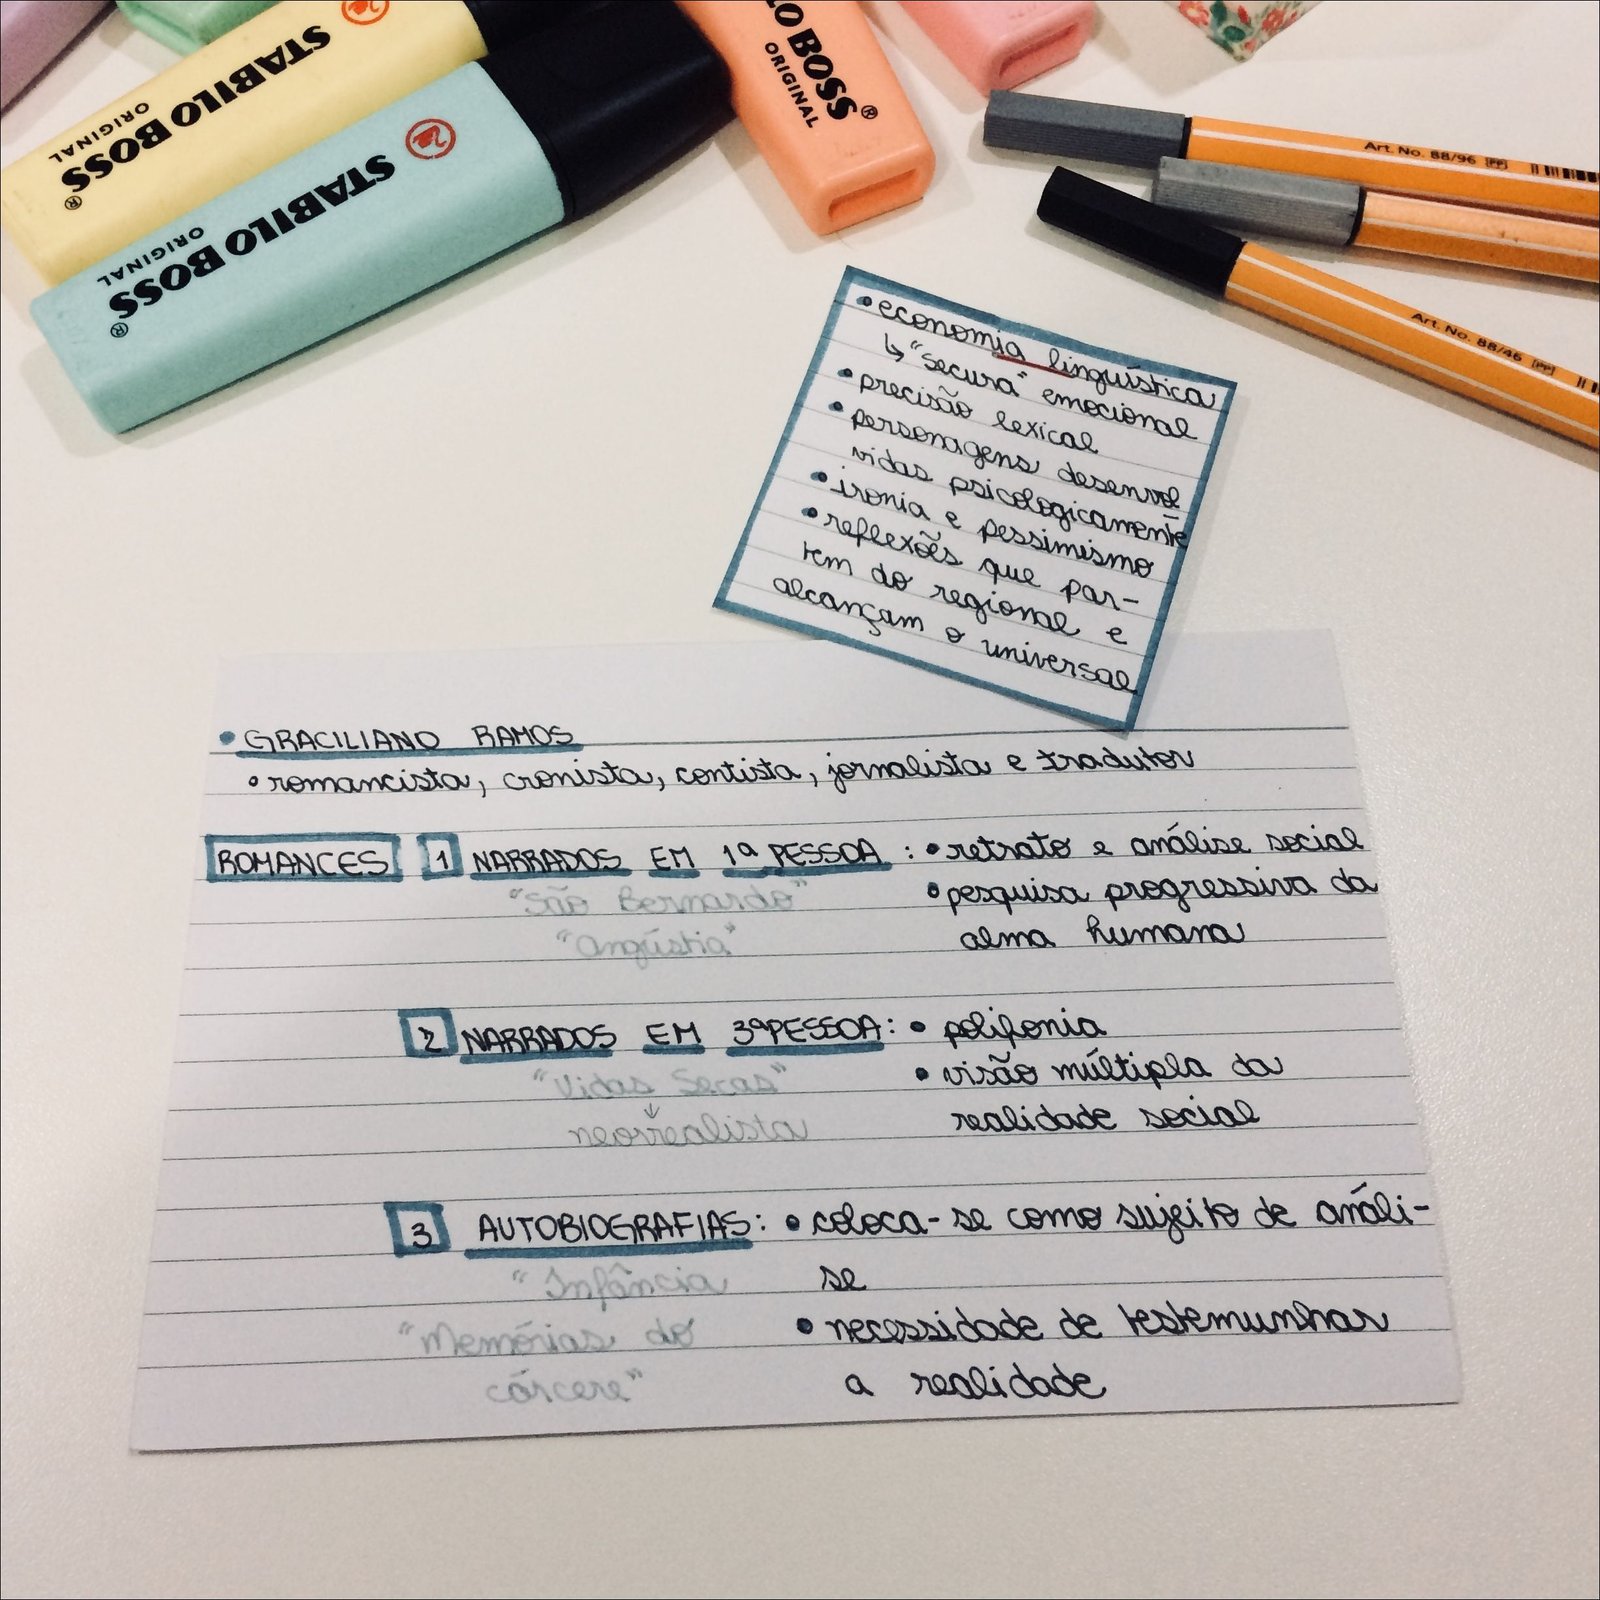 STABILO BOSS®
ORIGINAL
STABILO BOSS®
ORIGINAL
LO BOSS®
ORIGINAL
Art. No. 88/96 PP
Art. No. 88/46 PP
•economia linguística
↳"secura" emocional
•precisão lexical
•personagens desenvol
vidas psicologicamente
•ironia e pessimismo
•reflexões que par-
tem do regional e
alcançam o universal
•GRACILIANO RAMOS
•romancista, cronista, contista, jornalista e tradutor
ROMANCES 1 NARRADOS EM 1ª PESSOA : •retrato e análise social
"São Bernardo" •pesquisa progressiva da
"Angústia" alma humana
2 NARRADOS EM 3ª PESSOA: • polifonia
"Vidas Secas" • visão múltipla da
neorrealista realidade social
3 AUTOBIOGRAFIAS: • coloca-se como sujeito de análi-
"Infância se
"Memórias do • necessidade de testemunhar
cárcere" a realidade